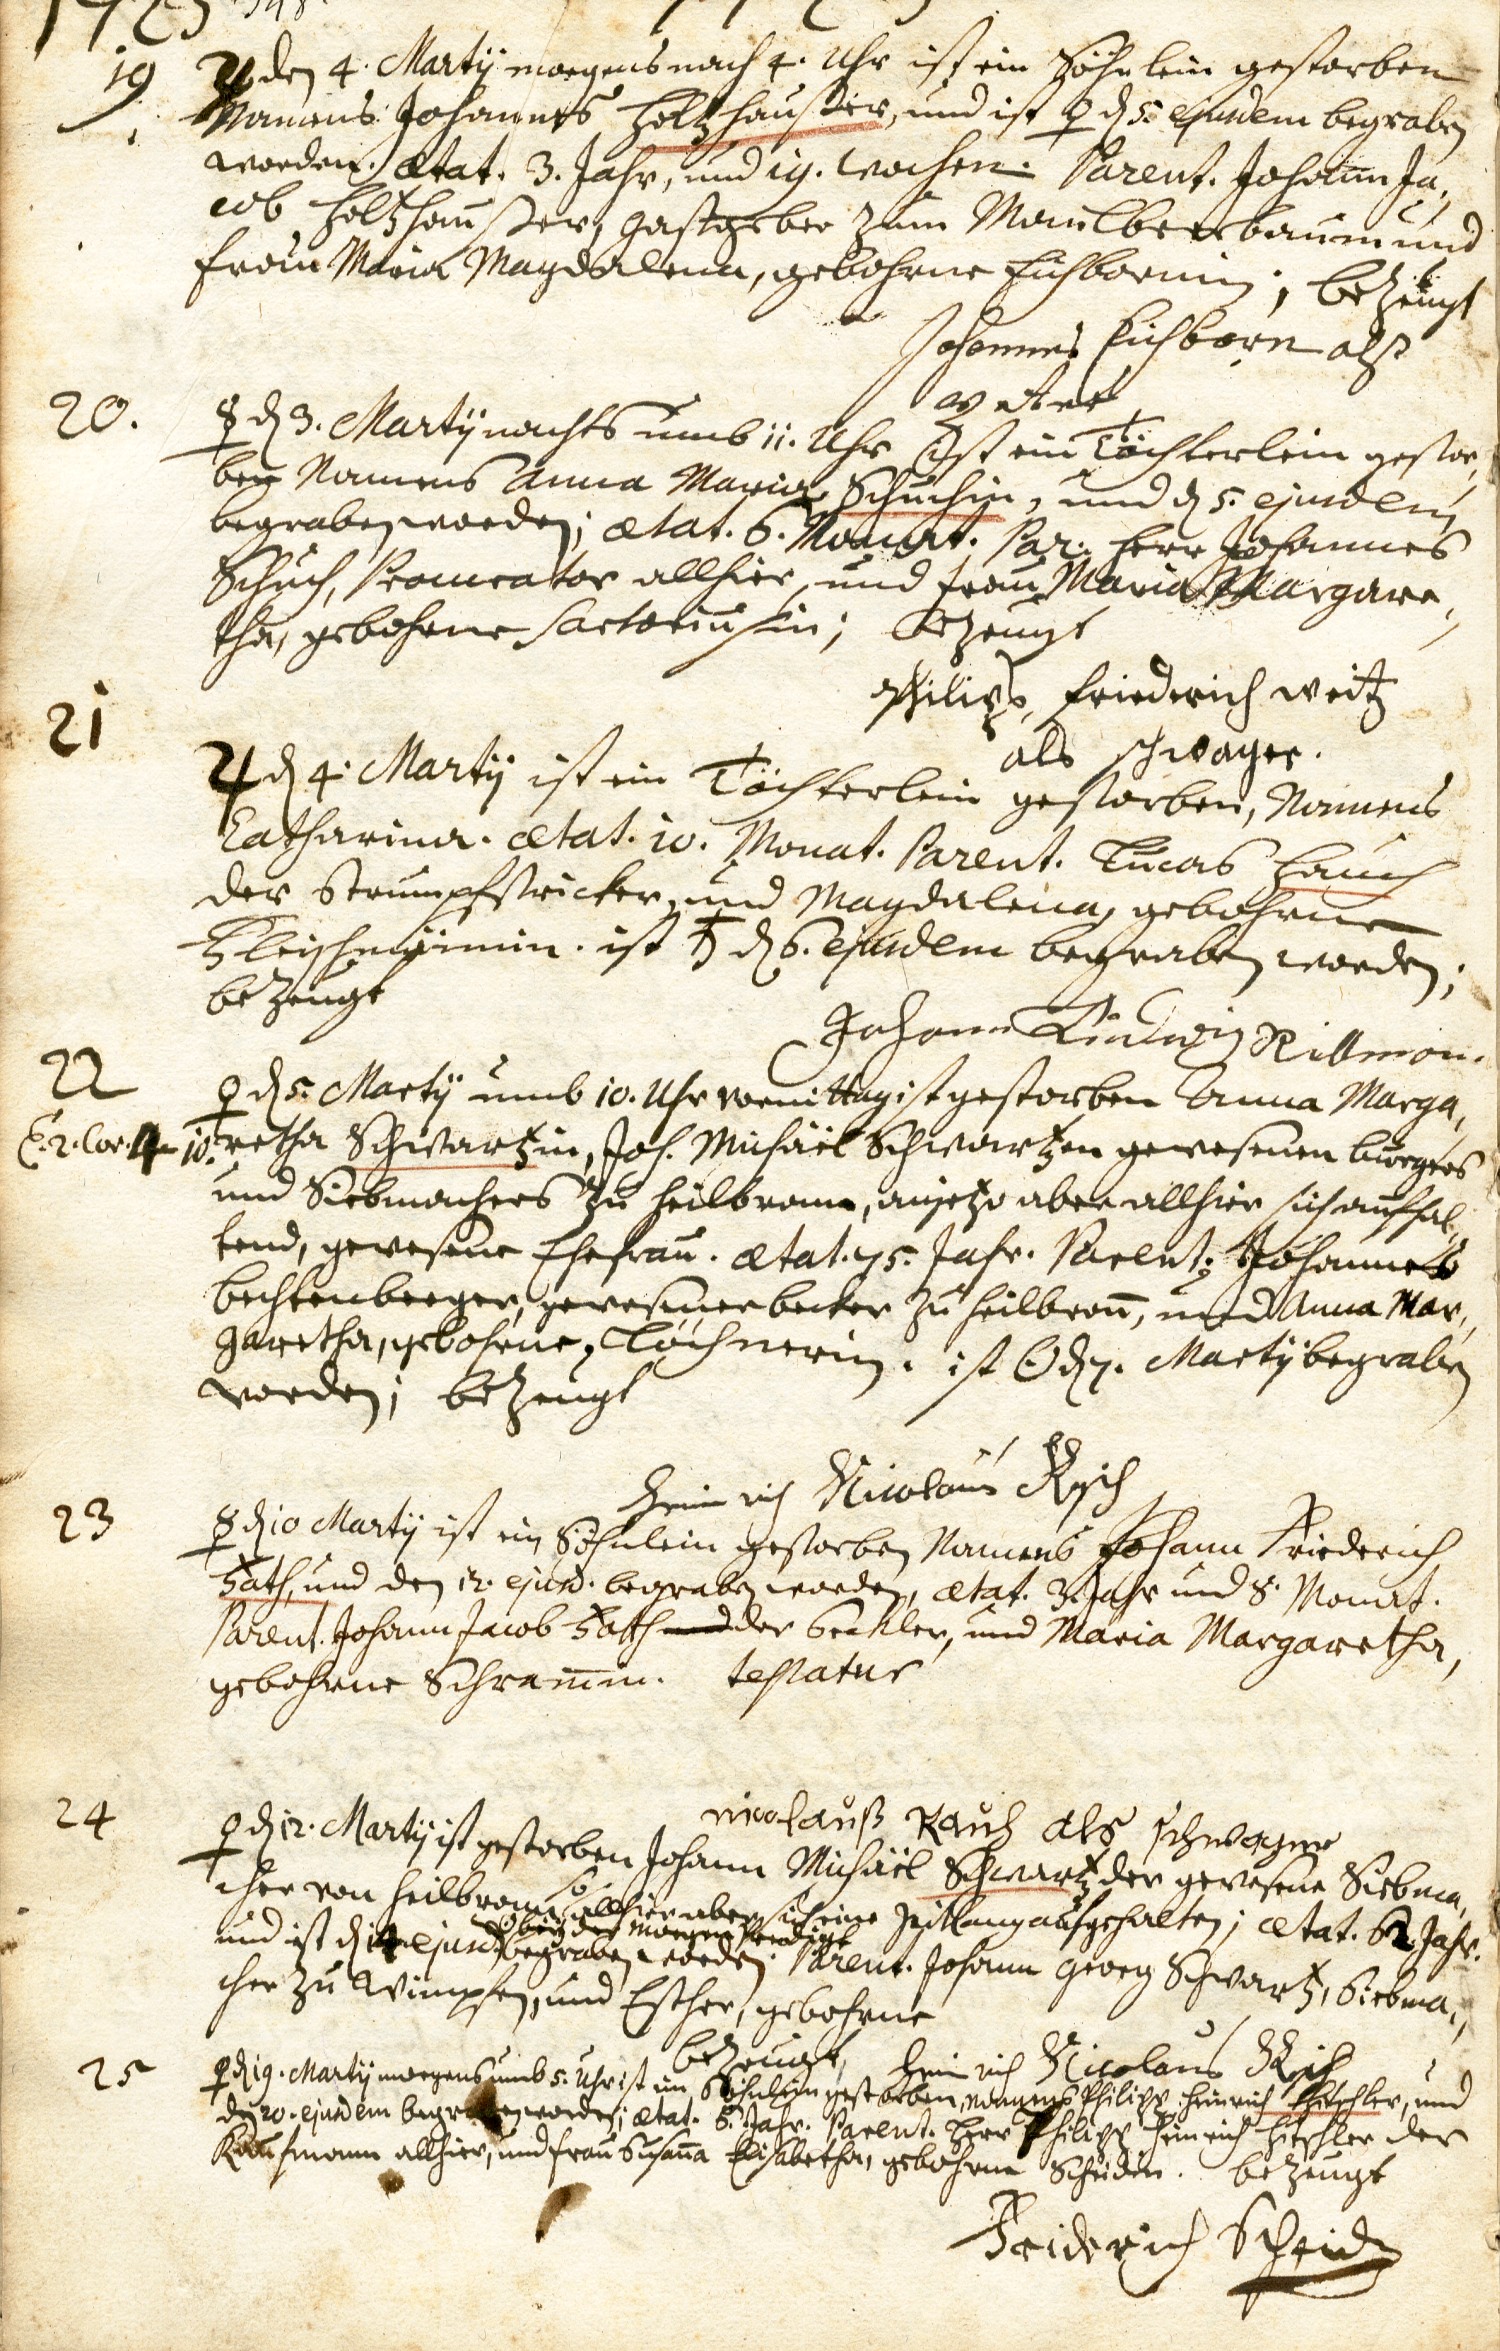 19 ♃ den 4. Martij morgens nach 4. Uhr ist ein Söhnlein gestorben
Namens Johannes Holtzhaußer, und ist ♀ d 5. ejusdem begraben
worden. Ætat. 3. Jahr, und 19. Wochen. Parent. Johann Ja,
cob Holtzhaußer, Gastgeber zum Maulbeerbaum und
Frau Maria Magdalena, gebohrne Eichbornin; bezeugt
Johannes Eichborn alß
20. ☿ d 3. Martij nachts umb 11. Uhr ist ein Töchterlein gestor,
ben Namens Anna Maria Schuchin, und d 5. ejusdem
begraben worden; ætat. 6. Monat. Par. Herr Johannes
Schuch, Procurator allhier, und Frau Maria Margare,
tha, gebohrne Sartoriußin; bezeugt
Philips Friederich Weitz
als schwager.
21 ♃ d 4. Martij ist ein Töchterlein gestorben, Namens
Catharina. ætat. 10. Monat. Parent. Lucas Hauch
der Strumpfstricker, und Magdalena, gebohrne
ist ♄ d 6. ejusdem begraben worden;
bezeugt
Johann Ludwig
22 ♀ d 5. Martij umb 10. Uhr vormittag ist gestorben Anna Marga,
C. 2. Cor. 4 10. retha Schwartzin, Joh. Michäel Schwartzen gewesenen burgers
und Siebmachers zu Heilbronn, anjetzo aber allhier sich aufhal,
tend, gewesene Ehefrau. ætat. 75. Jahr. Parent: Johannes
Bechtenberger, gewesener becker zu Heilbronn, und Anna Mar,
garetha, gebohrne, ist ☉ d 7. Martij begraben
worden; bezeugt
Heinrich Nicolaus
23 ☿ d 10 Martij ist ein Söhnlein gestorben Namens Johann Friederich
Fath, und den 12. ejusd. begraben worden, ætat. 3. Jahr und 8. Monat.
Parent. Johann Jacob Fath der Seckler, und Maria Margaretha,
gebohrne Schrammin. testatur
Nicolauß Rauch als schwager
24 ♀ d 12. Martij ist gestorben Johann Michäel Schwartz der gewesene Siebma,
cher von Heilbronn, so allhier aber sich eine Zeitlang aufgehalten; ætat. 62 Jahr.
bey der Morgen Predigt
und ist d 14 ejusd. begraben worden. Parent. Johann Georg Schwartz, Siebma,
cher zu Wimpfen, und Esther, gebohrne
bezeugt Heinrich Nicolaus
25 ♀ d 19. Martij morgens umb 5. Uhr ist ein Söhnlein gestorben, Namens Philipp Heinrich Hirschler, und
d 20. ejusdem begraben worden; ætat. 8. Jahr. Parent. Herr Philipp Heinrich Hirschler der
Kaufmann allhier, und Frau Susanna Elisabetha, gebohrne Scheiden. bezeugt
Friderich Scheid